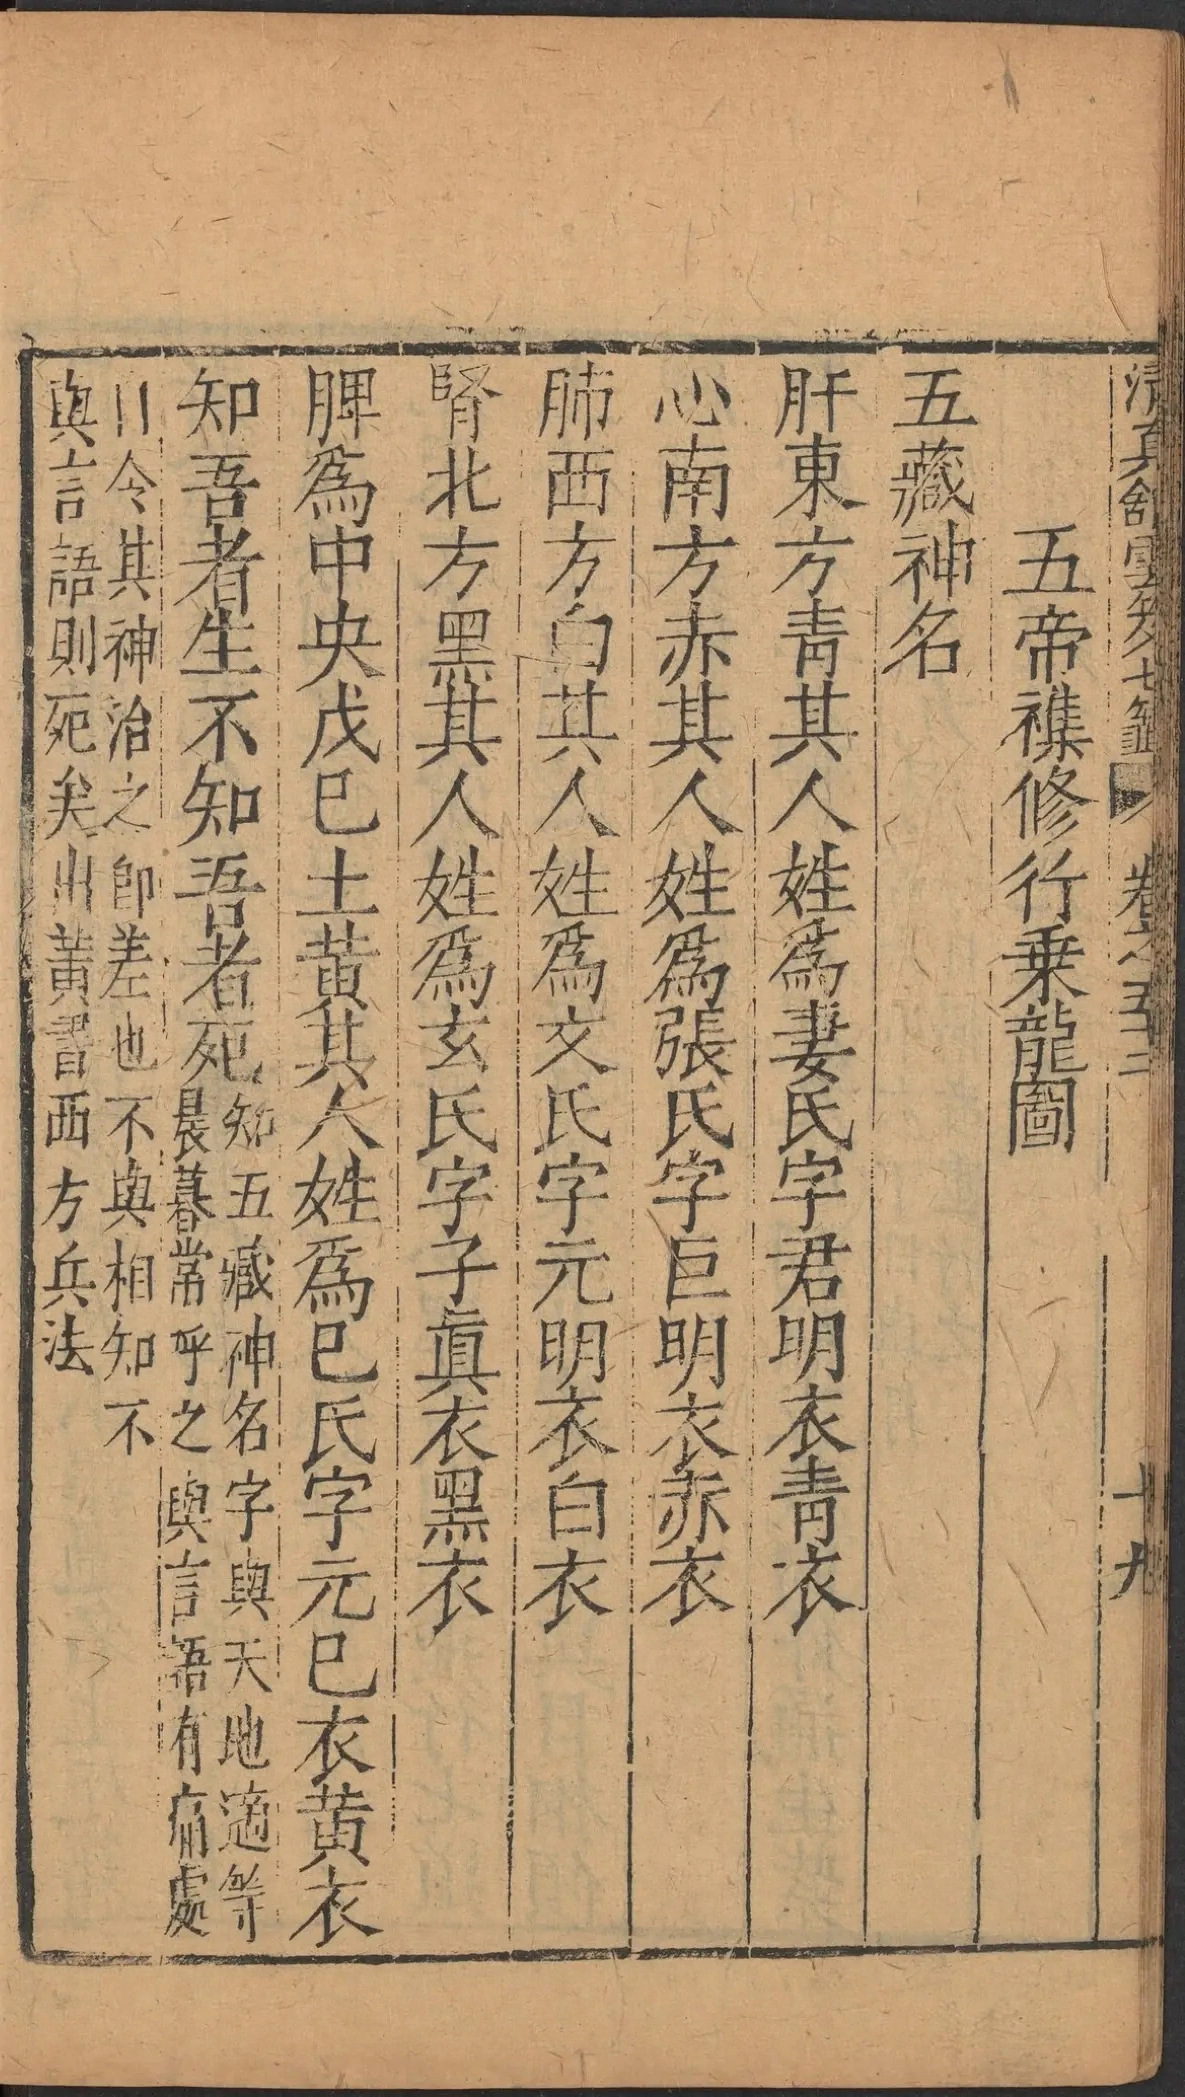 清真舘雲笈七籤 卷之五十二 十九
五帝襍修行乗龍圖
五藏神名
肝東方青其人姓爲妻氏字君明衣青衣
心南方赤其人姓爲張氏字巨明衣赤衣
肺西方白其人姓爲文氏字元明衣白衣
腎北方黑其人姓爲玄氏字子眞衣黑衣
脾爲中央戊巳土黄其人姓爲巳氏字元巳衣黄衣
知吾者生不知吾者死
知五臧神名字與天地適等
晨暮常呼之與言語有痛處
令其神治之卽差也不與相知不
與言語則死矣出黄書西方兵法